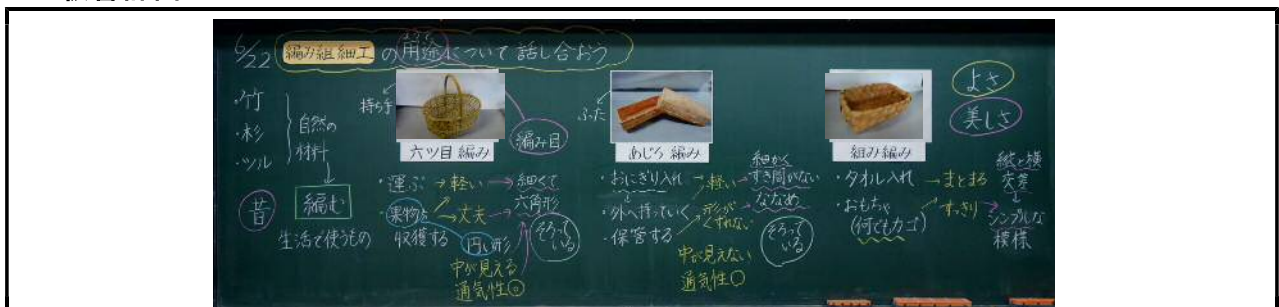 6/22 編み組細工の用途について話し合おう
・竹
・杉
・ツル
自然の
材料
昔
編む
生活で使うもの
持ち手
六ツ目編み
編み目
・運ぶ→軽い→細くて
六角形
・果物を→丈夫
収獲する
円い形
そろって
いる
中が見える
通気性◎
ふた
あじろ編み
・おにぎり入れ
・外へ持っていく
・保管する
軽い
形が
くずれない
細かく
すき間がない
ななめ
そろって
いる
中が見えない
通気性○
よさ
美しさ
組み編み
・タオル入れ→まとまる
・おもちゃ
(何でもカゴ)
すっきり
縦と横
交差
シンプルな
模様